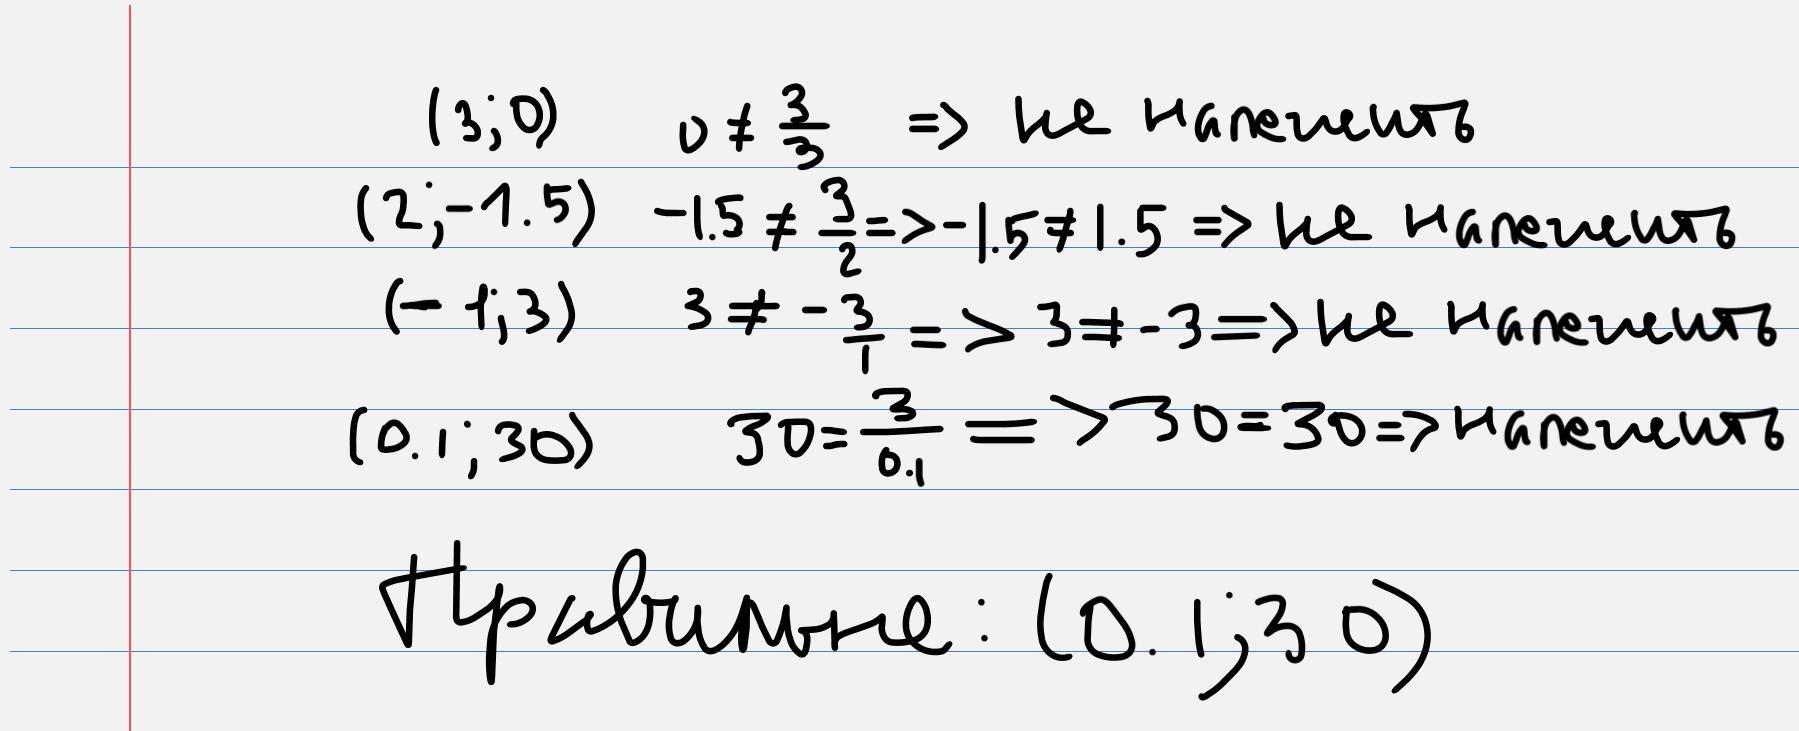 (3;0) 0 ≠ 3/3 => не належить
(2;-1.5) -1.5 ≠ 3/2 => -1.5 ≠ 1.5 => не належить
(-1;3) 3 ≠ -3/1 => 3 ≠ -3 => не належить
(0.1;30) 30 = 3/0.1 => 30 = 30 => належить
Правильне: (0.1;30)